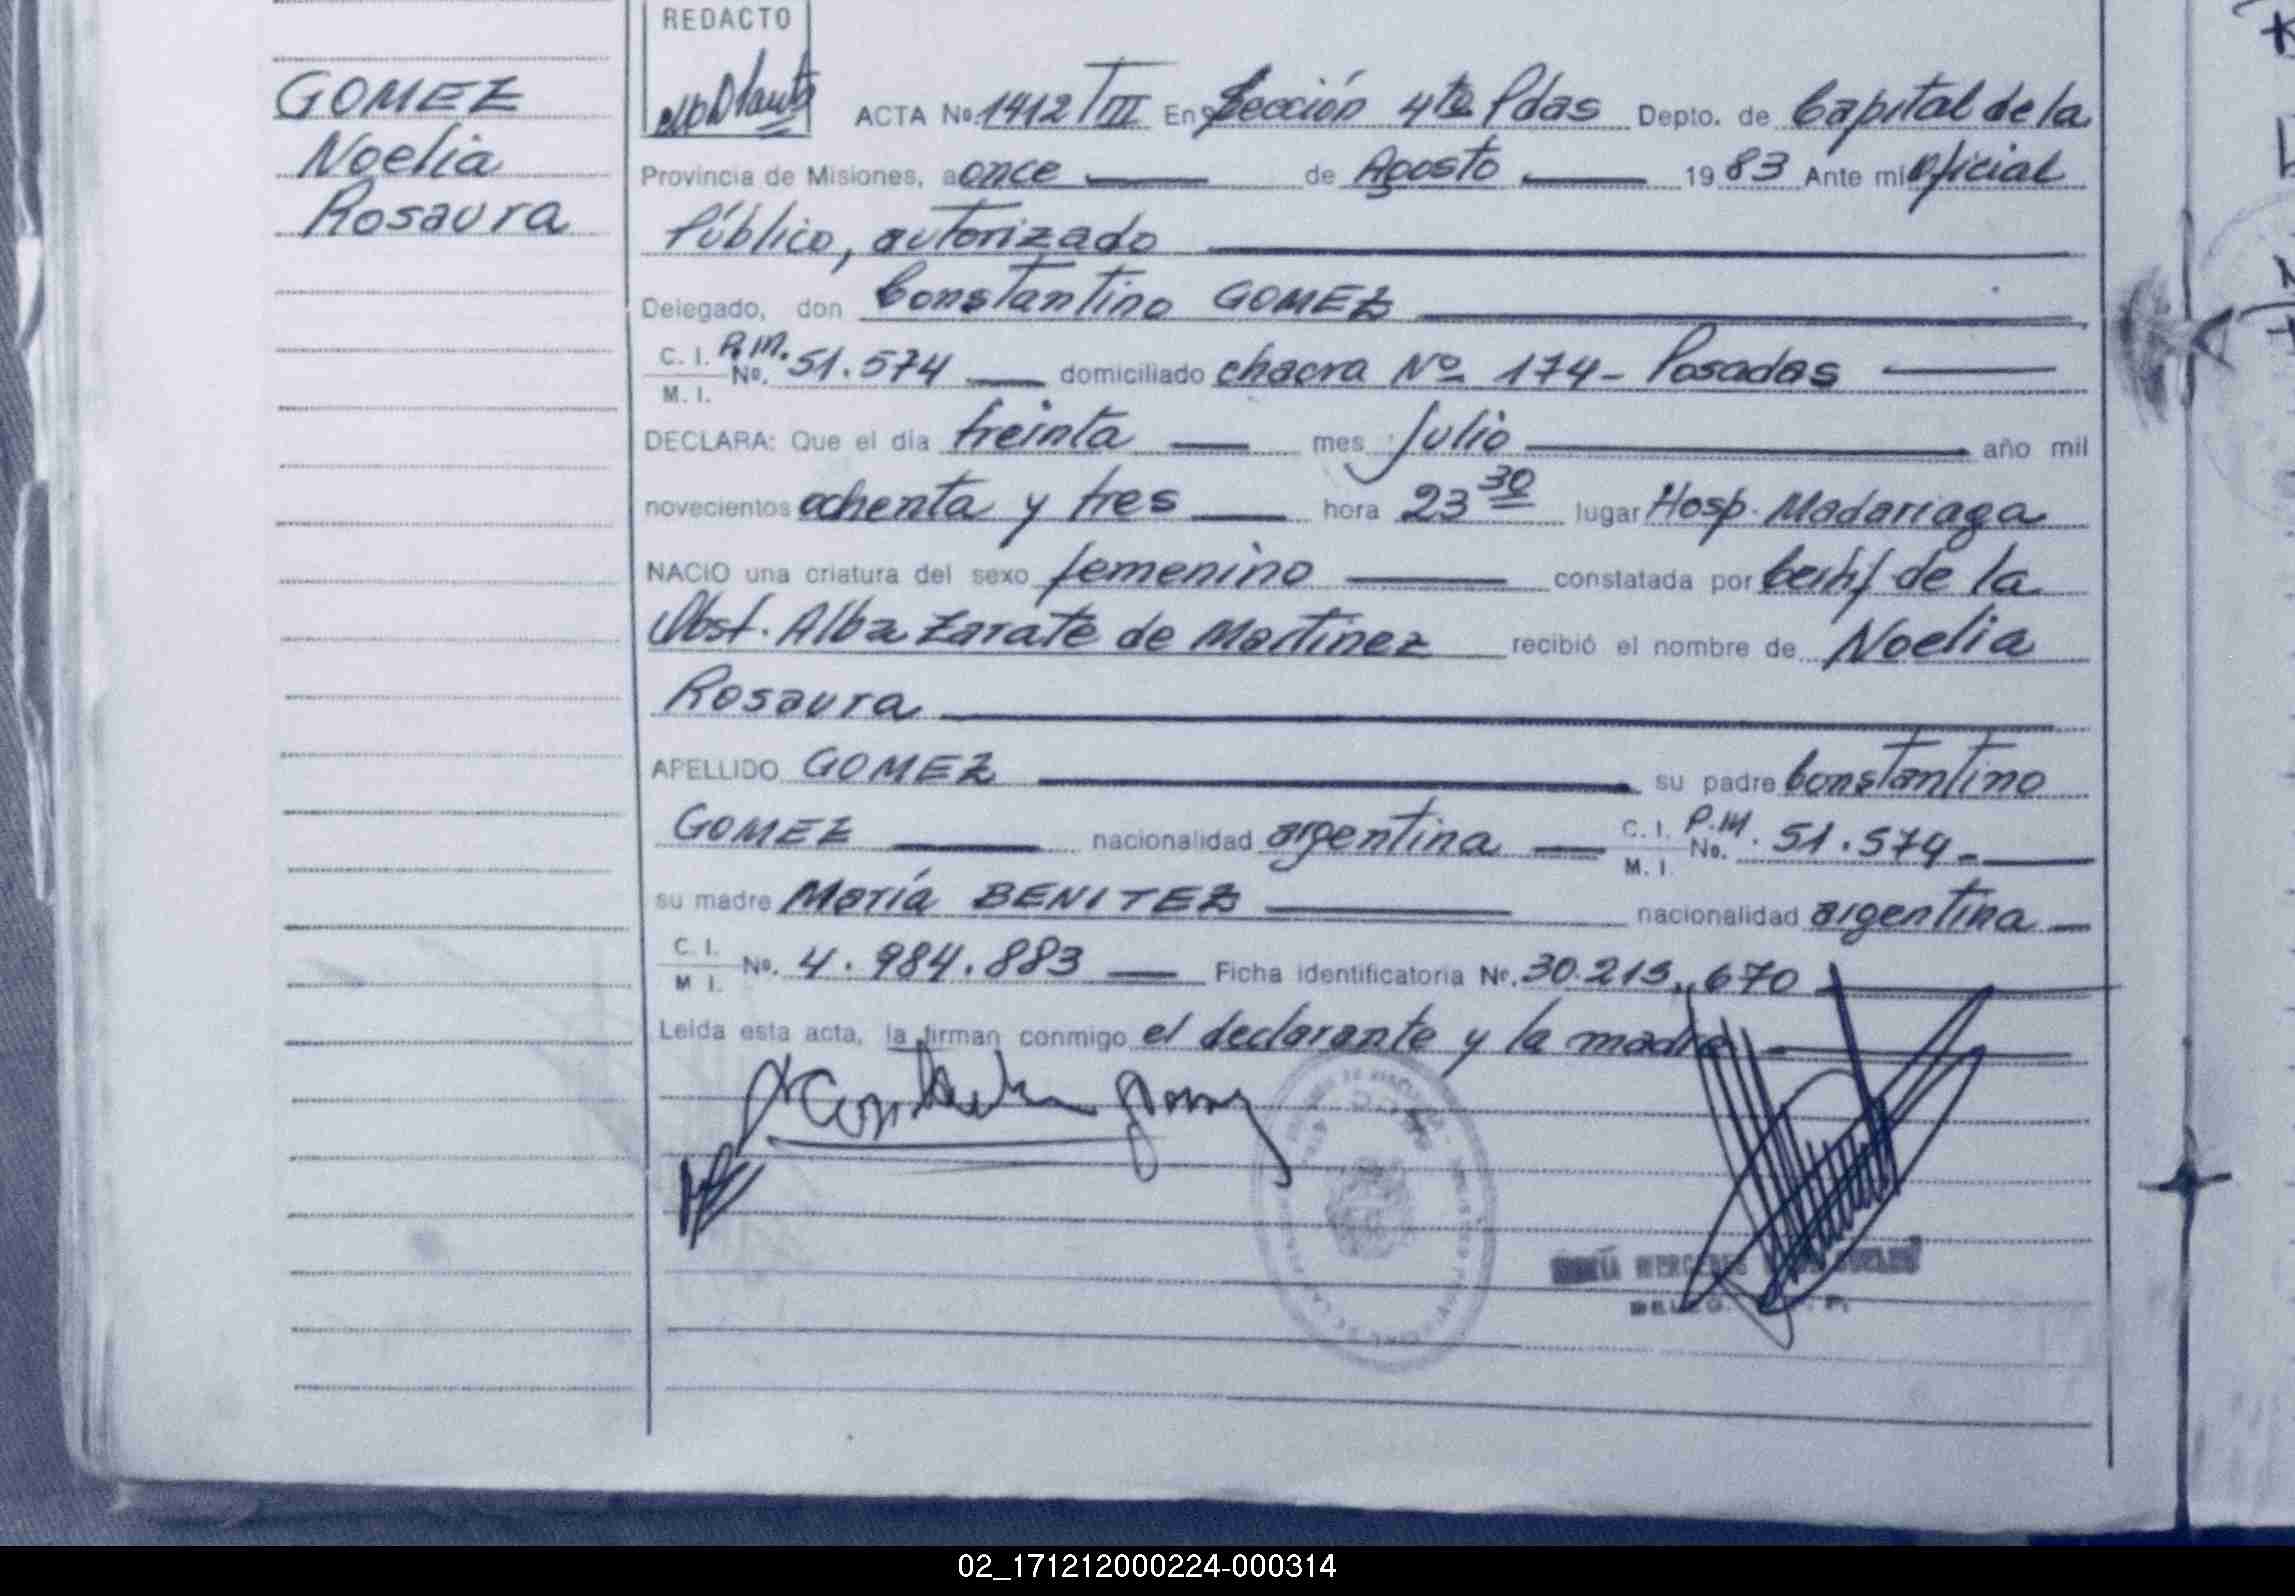 REDACTO
GOMEZ
Noelia
Rosaura
ACTA No. 1412 T III En Sección 4ta Pdas Depto. de Capital de la
Provincia de Misiones, a once de Agosto 19 83 Ante mi Oficial
Público, autorizado
Delegado, don Constantino GOMEZ
C. I. P.M. No. 51.574 domiciliado chacra Nº 174- Posadas
M. I.
DECLARA: Que el día treinta mes Julio año mil
novecientos ochenta y tres hora 23 30 lugar Hosp. Madariaga
NACIO una criatura del sexo femenino constatada por Certif de la
Obst. Alba Zarate de Martinez recibió el nombre de Noelia
Rosaura
APELLIDO GOMEZ su padre Constantino
GOMEZ nacionalidad argentina C. I. P.M. No. 51.574-
M. I.
su madre María BENITEZ nacionalidad argentina
C. I. No. 4.984.883 Ficha identificatoria No. 30.213.670
M I.
Leida esta acta, la firman conmigo el declarante y la madre
02_171212000224-000314